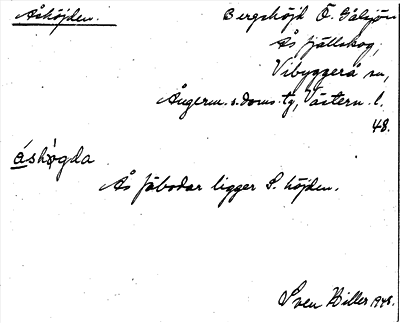 Åshöjden.
Bergshöjd Ö. Gålsjön
Ås fjällskog,
Vibyggerå sn,
Ångerm. s. doms. tg, Västern. l.
48.
áshøgda
Ås fäbodar ligger S. höjden.
Sven Hiller 1948.